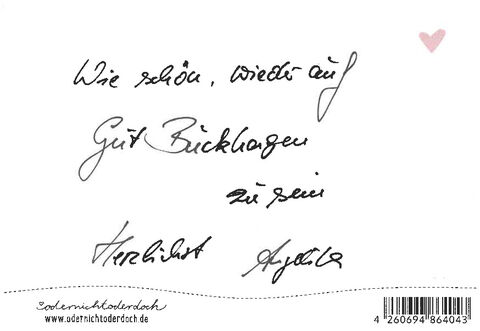 Wie schön, wieder auf
Gut Bückhagen
zu sein
Herzlichst Angelika
odernichtoderdoch
www.odernichtoderdoch.de
4 260694 864043